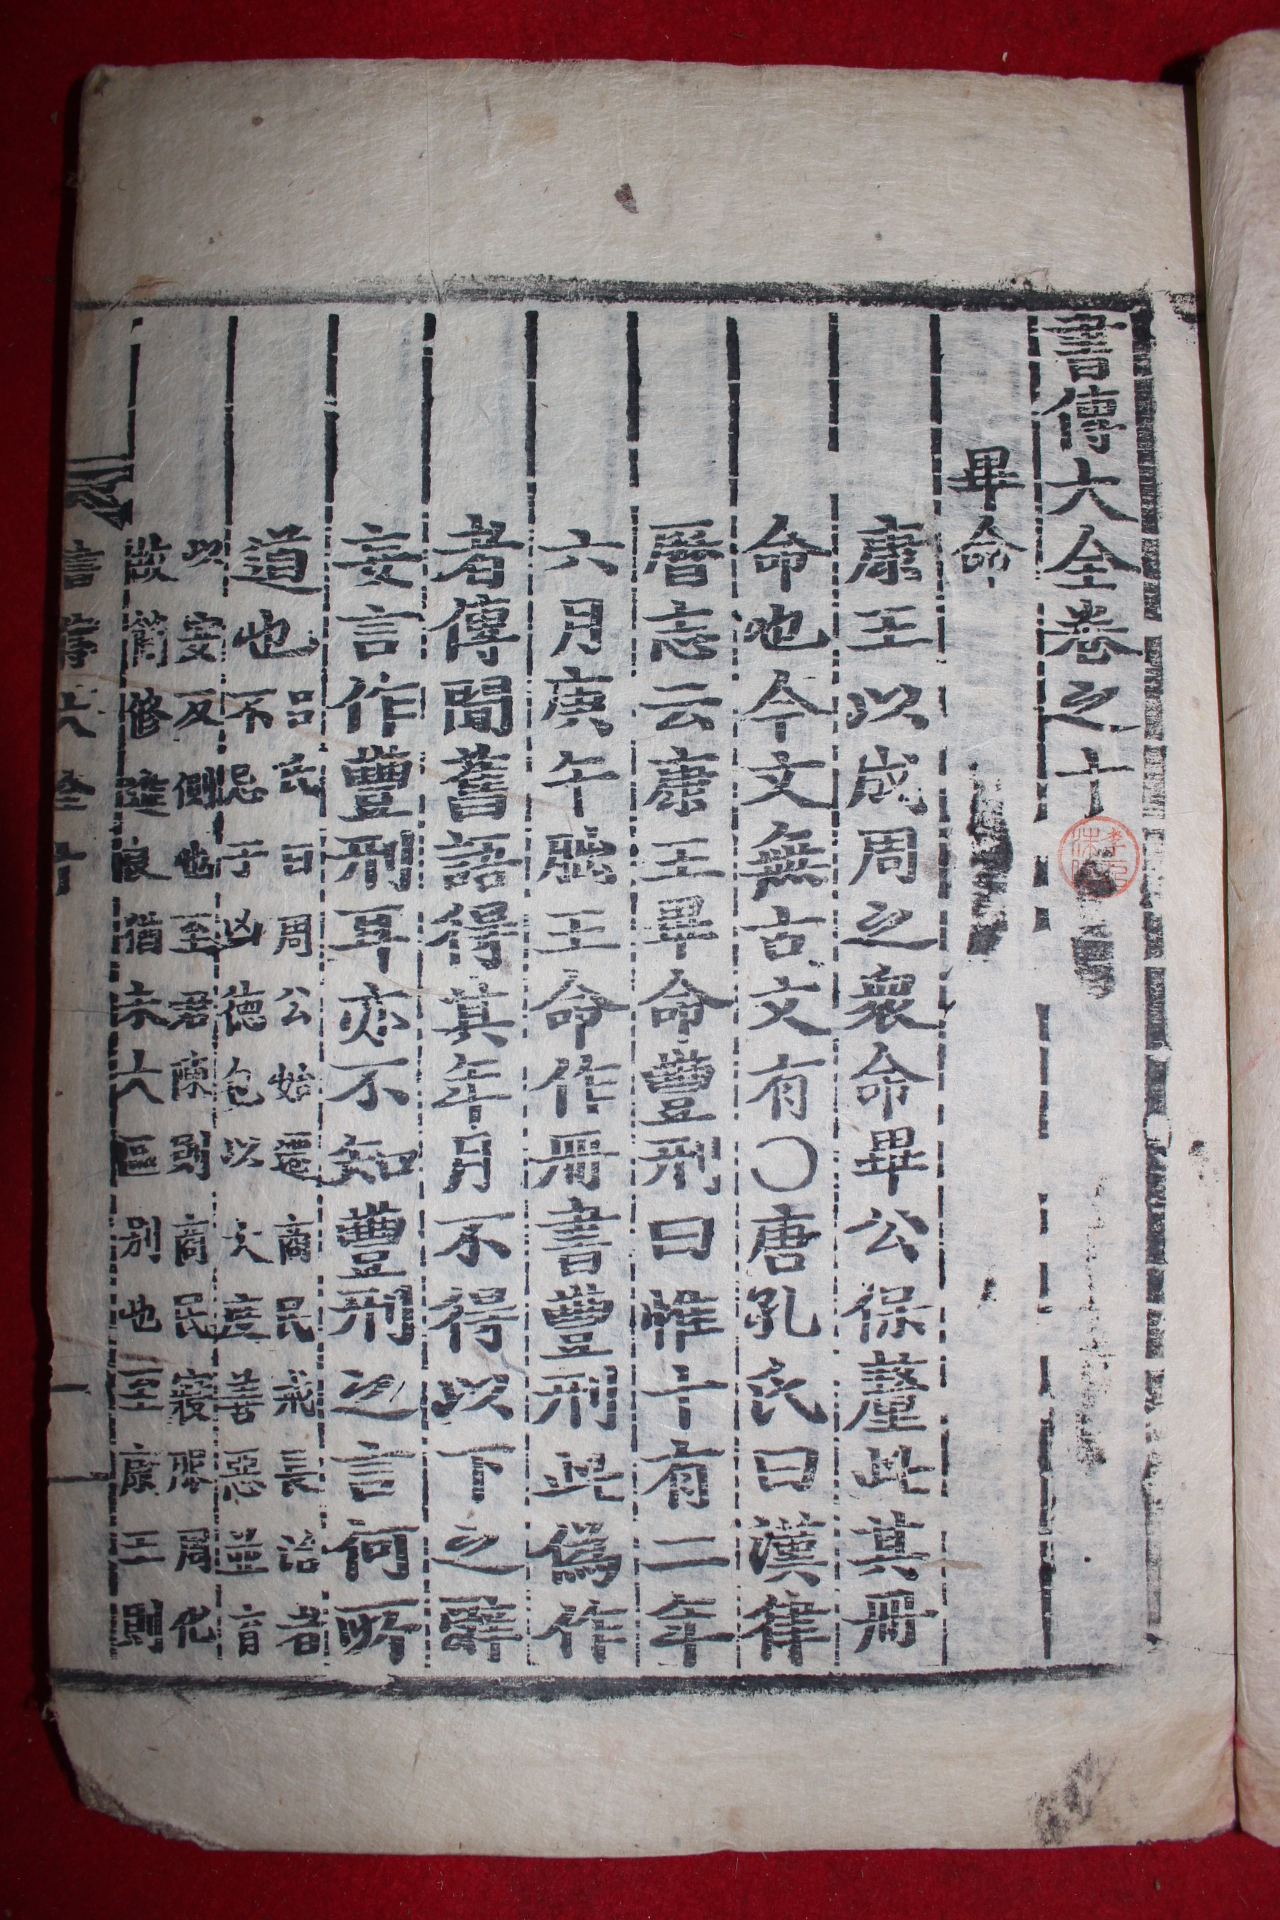 書傳大全卷之十
畢命
康王以成周之衆命畢公保釐此其冊
命也今文無古文有〇唐孔氏曰漢律
曆志云康王畢命豐刑曰惟十有二年
六月庚午朏王命作冊書豐刑此僞作
者傳聞舊語得其年月不得以下之辭
妄言作豐刑耳亦不知豐刑之言何所
道也
呂氏曰周公始遷商民戒長治者
不忌于凶德包以大度善惡並育
以安反側也至君陳則商民寖服周化
故簡修進良猶未大區別也至康王則
書傳大全卷十
一